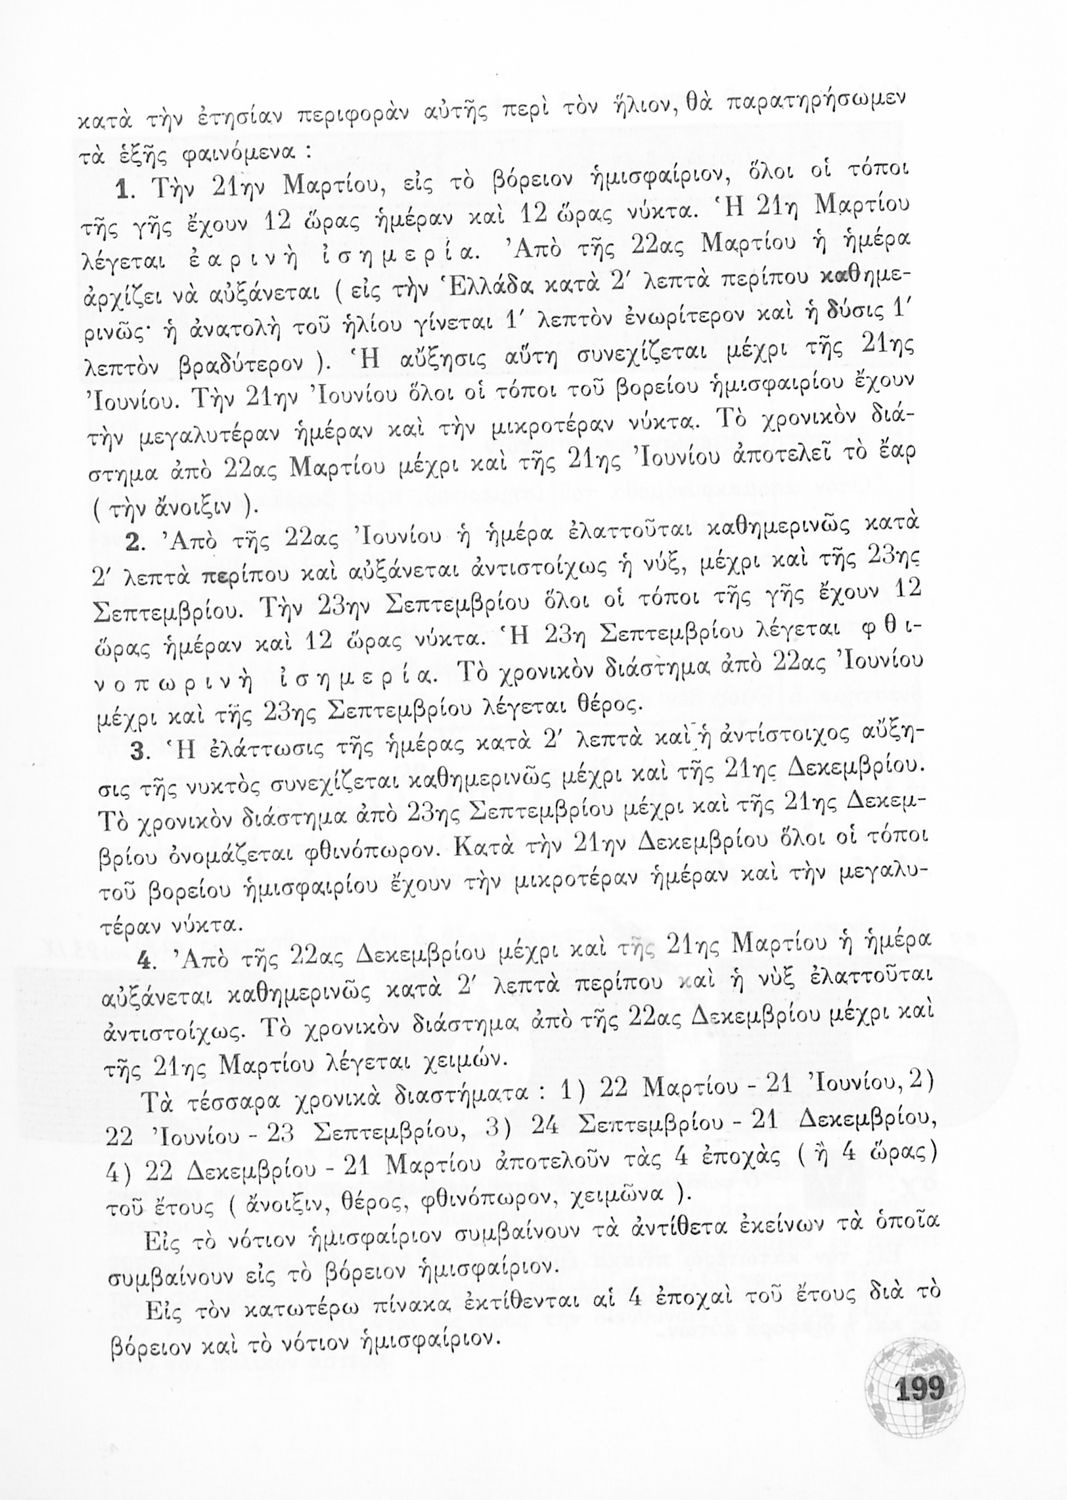 κατὰ τὴν ἐτησίαν περιφορὰν αὐτῆς περὶ τὸν ἥλιον, θὰ παρατηρήσωμεν
τὰ ἑξῆς φαινόμενα :
1. Τὴν 21ην Μαρτίου, εἰς τὸ βόρειον ἡμισφαίριον, ὅλοι οἱ τόποι
τῆς γῆς ἔχουν 12 ὥρας ἡμέραν καὶ 12 ὥρας νύκτα. Ἡ 21η Μαρτίου
λέγεται ἐ α ρ ι ν ὴ ἰ σ η μ ε ρ ί α. Ἀπὸ τῆς 22ας Μαρτίου ἡ ἡμέρα
ἀρχίζει νὰ αὐξάνεται ( εἰς τὴν Ἑλλάδα κατὰ 2′ λεπτὰ περίπου καθημε-
ρινῶς· ἡ ἀνατολὴ τοῦ ἡλίου γίνεται 1′ λεπτὸν ἐνωρίτερον καὶ ἡ δύσις 1′
λεπτὸν βραδύτερον ). Ἡ αὔξησις αὕτη συνεχίζεται μέχρι τῆς 21ης
Ἰουνίου. Τὴν 21ην Ἰουνίου ὅλοι οἱ τόποι τοῦ βορείου ἡμισφαιρίου ἔχουν
τὴν μεγαλυτέραν ἡμέραν καὶ τὴν μικροτέραν νύκτα. Τὸ χρονικὸν διά-
στημα ἀπὸ 22ας Μαρτίου μέχρι καὶ τῆς 21ης Ἰουνίου ἀποτελεῖ τὸ ἔαρ
( τὴν ἄνοιξιν ).
2. Ἀπὸ τῆς 22ας Ἰουνίου ἡ ἡμέρα ἐλαττοῦται καθημερινῶς κατὰ
2′ λεπτὰ περίπου καὶ αὐξάνεται ἀντιστοίχως ἡ νύξ, μέχρι καὶ τῆς 23ης
Σεπτεμβρίου. Τὴν 23ην Σεπτεμβρίου ὅλοι οἱ τόποι τῆς γῆς ἔχουν 12
ὥρας ἡμέραν καὶ 12 ὥρας νύκτα. Ἡ 23η Σεπτεμβρίου λέγεται φ θ ι-
ν ο π ω ρ ι ν ὴ ἰ σ η μ ε ρ ί α. Τὸ χρονικὸν διάστημα ἀπὸ 22ας Ἰουνίου
μέχρι καὶ τῆς 23ης Σεπτεμβρίου λέγεται θέρος.
3. Ἡ ἐλάττωσις τῆς ἡμέρας κατὰ 2′ λεπτὰ καὶ ἡ ἀντίστοιχος αὔξη-
σις τῆς νυκτὸς συνεχίζεται καθημερινῶς μέχρι καὶ τῆς 21ης Δεκεμβρίου.
Τὸ χρονικὸν διάστημα ἀπὸ 23ης Σεπτεμβρίου μέχρι καὶ τῆς 21ης Δεκεμ-
βρίου ὀνομάζεται φθινόπωρον. Κατὰ τὴν 21ην Δεκεμβρίου ὅλοι οἱ τόποι
τοῦ βορείου ἡμισφαιρίου ἔχουν τὴν μικροτέραν ἡμέραν καὶ τὴν μεγαλυ-
τέραν νύκτα.
4. Ἀπὸ τῆς 22ας Δεκεμβρίου μέχρι καὶ τῆς 21ης Μαρτίου ἡ ἡμέρα
αὐξάνεται καθημερινῶς κατὰ 2′ λεπτὰ περίπου καὶ ἡ νὺξ ἐλαττοῦται
ἀντιστοίχως. Τὸ χρονικὸν διάστημα ἀπὸ τῆς 22ας Δεκεμβρίου μέχρι καὶ
τῆς 21ης Μαρτίου λέγεται χειμών.
Τὰ τέσσαρα χρονικὰ διαστήματα : 1) 22 Μαρτίου - 21 Ἰουνίου, 2)
22 Ἰουνίου - 23 Σεπτεμβρίου, 3) 24 Σεπτεμβρίου - 21 Δεκεμβρίου,
4) 22 Δεκεμβρίου - 21 Μαρτίου ἀποτελοῦν τὰς 4 ἐποχὰς ( ἢ 4 ὥρας)
τοῦ ἔτους ( ἄνοιξιν, θέρος, φθινόπωρον, χειμῶνα ).
Εἰς τὸ νότιον ἡμισφαίριον συμβαίνουν τὰ ἀντίθετα ἐκείνων τὰ ὁποῖα
συμβαίνουν εἰς τὸ βόρειον ἡμισφαίριον.
Εἰς τὸν κατωτέρω πίνακα ἐκτίθενται αἱ 4 ἐποχαὶ τοῦ ἔτους διὰ τὸ
βόρειον καὶ τὸ νότιον ἡμισφαίριον.
199